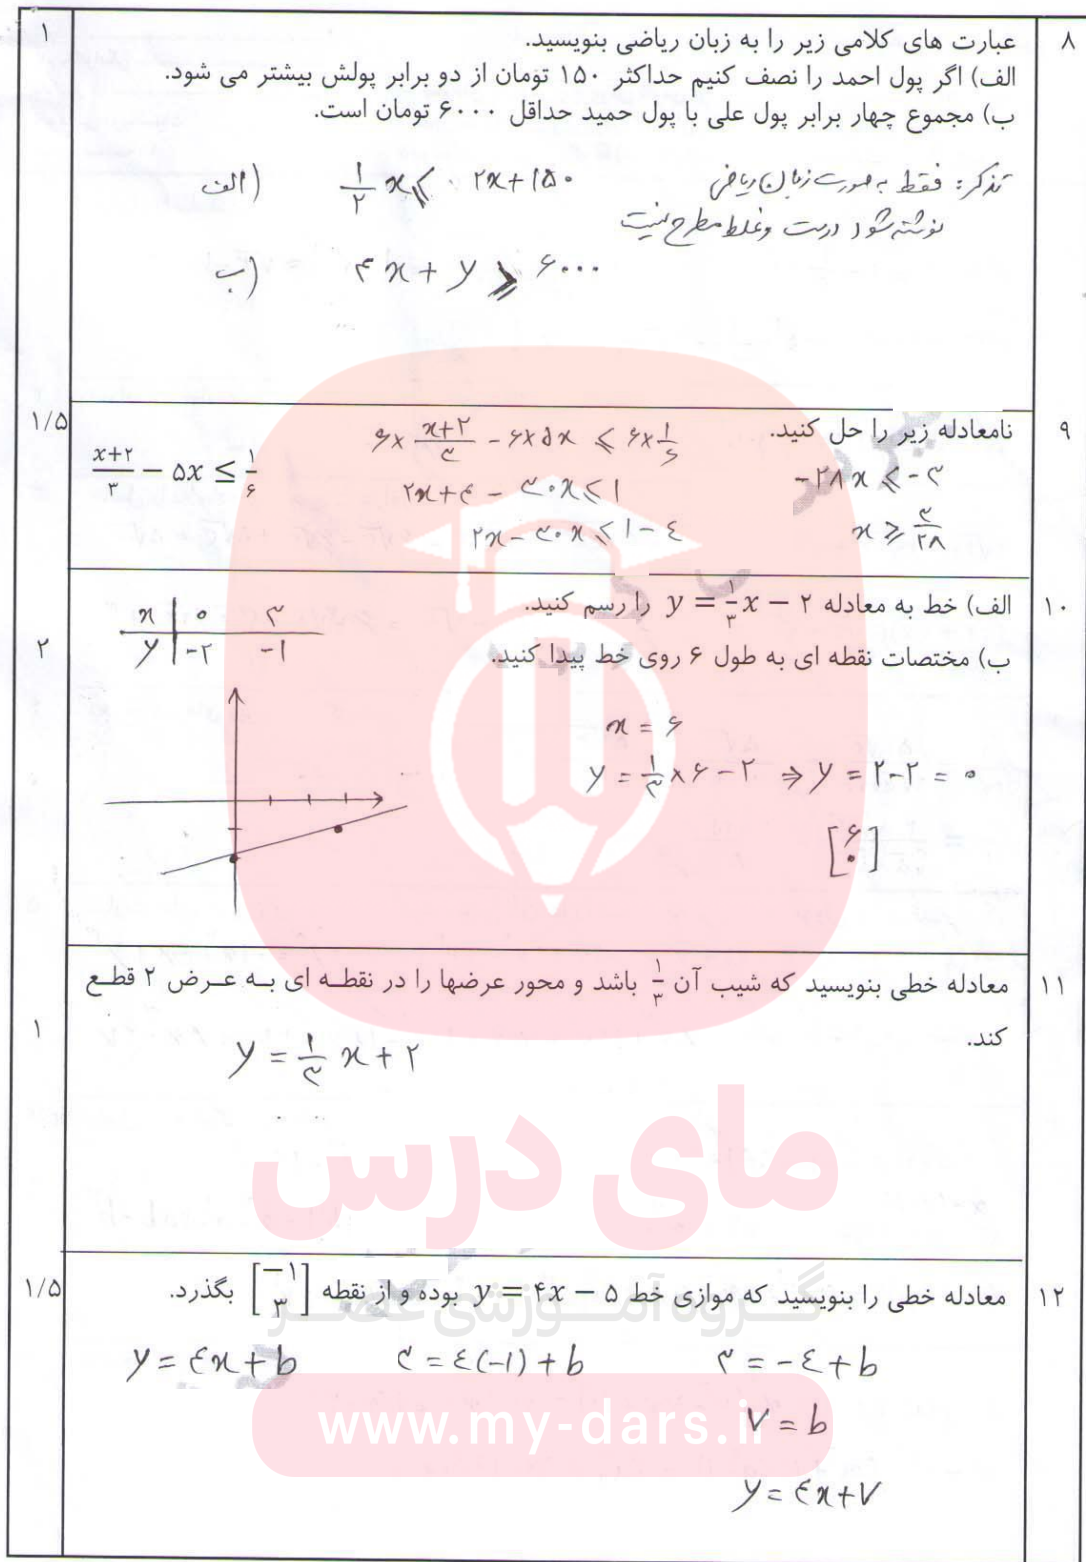 ۸
عبارت های کلامی زیر را به زبان ریاضی بنویسید.
۱
الف) اگر پول احمد را نصف کنیم حداکثر ۱۵۰ تومان از دو برابر پولش بیشتر می شود.
ب) مجموع چهار برابر پول علی با پول حمید حداقل ۶۰۰۰ تومان است.
الف) ۱/۲ x ≤ ۲x+۱۵۰
تذکر: فقط به صورت زبان ریاضی
نوشته شود درست و غلط مطرح نیست
ب) ۴x + y ≥ ۶۰۰۰
۹
نامعادله زیر را حل کنید.
۱/۵
(x+۲)/۳ − ۵x ≤ ۱/۶
۶× (x+۲)/۳ − ۶×۵x ≤ ۶×۱/۶
۲x+۴ − ۳۰x ≤ ۱
۲x − ۳۰x ≤ ۱ − ۴
−۲۸x ≤ −۳
x ≥ ۳/۲۸
۱۰
الف) خط به معادله y = ۱/۳ x − ۲ را رسم کنید.
ب) مختصات نقطه ای به طول ۶ روی خط پیدا کنید.
۲
x | ۰ ۳
y | −۲ −۱
x = ۶
y = ۱/۳ × ۶ − ۲ ⇒ y = ۲−۲ = ۰
[۶ ۰]
۱۱
معادله خطی بنویسید که شیب آن ۱/۳ باشد و محور عرضها را در نقطه ای به عرض ۲ قطع
کند.
۱
y = ۱/۳ x + ۲
مای درس
۱۲
معادله خطی را بنویسید که موازی خط y = ۴x − ۵ بوده و از نقطه [−۱ ۳] بگذرد.
۱/۵
گروه آموزشی عصر
y = ۴x + b
۳ = ۴(−۱) + b
۳ = −۴ + b
۷ = b
y = ۴x+۷
www.my-dars.ir